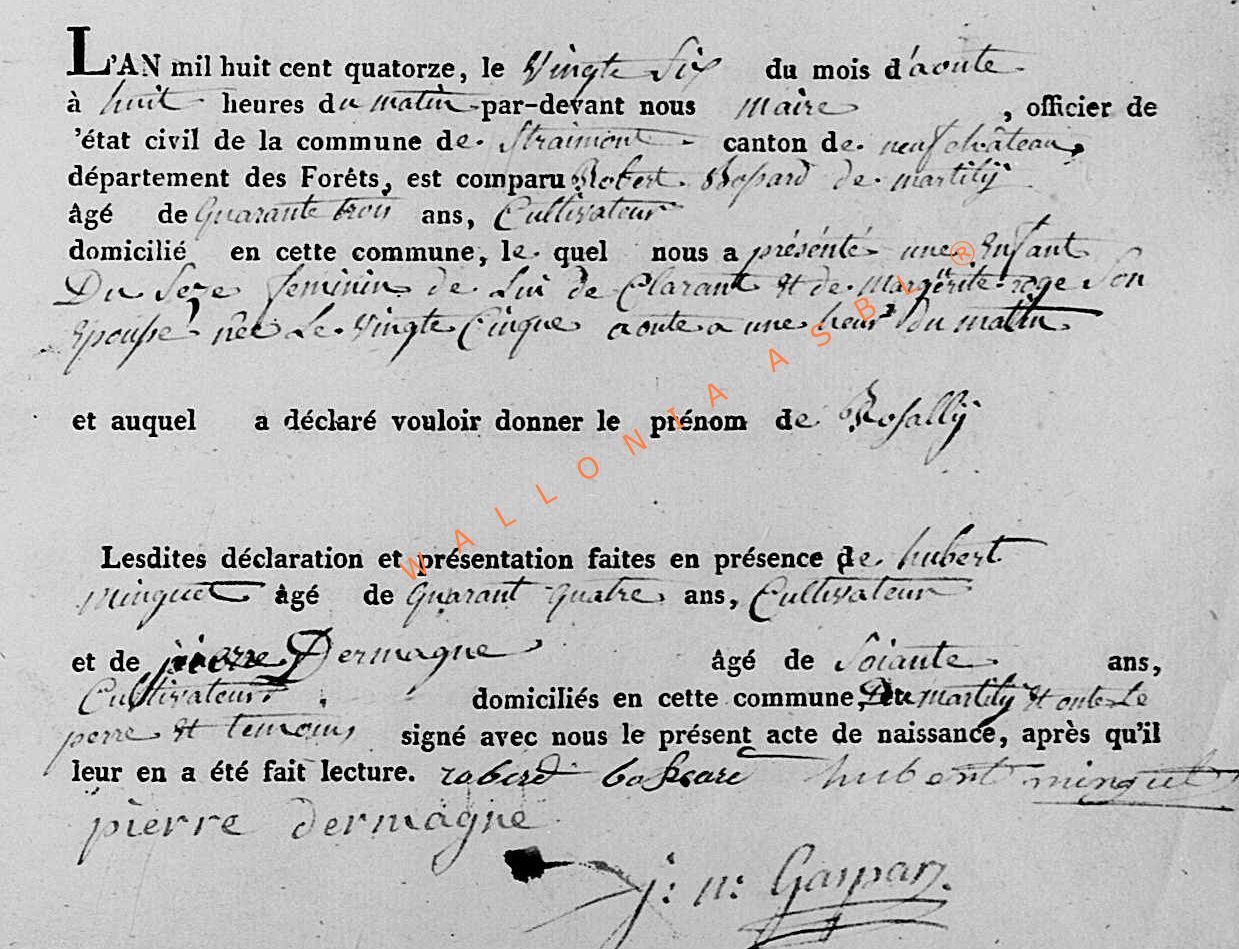 L'AN mil huit cent quatorze, le Vingte Six du mois d'aoute
à huit heures du matin par-devant nous maire , officier de
'état civil de la commune de Straimont canton de neufchâteau,
département des Forêts, est comparu Robert Bossard de martilÿ
âgé de Quarante trois ans, Cultivateur
domicilié en cette commune, le quel nous a présénté une Enfant
Du Sexe feminin de Lui de Clarant et de Margërite roge Son
Epousse née Le Vingte Cinque aoute a une heur Du matin
et auquel a déclaré vouloir donner le prénom de Rosallÿ
Lesdites déclaration et présentation faites en présence de hubert
minguet âgé de Quarant Quatre ans, Cultivateur
et de pierre Dermagne âgé de Soiante ans,
Cultivateur, domiciliés en cette commune, martilÿ et onte Le
perre et temoins signé avec nous le présent acte de naissance, après qu'il
leur en a été fait lecture. hubert minguet
pierre dermagne
j: n: Gaspar
WALLONIA ASBL ®